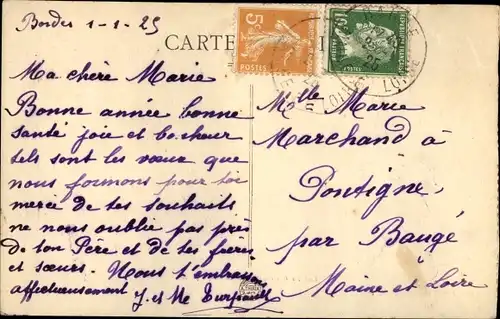 Bordes 1-1-25
CARTE
5c
POSTES
10c
REPUBLIQUE FRANCAISE
Ma chère Marie
Bonne année bonne
santé joie et bonheur
tels sont les vœux que
nous formons pour toi
merci de tes souhaits
ne nous oublie pas près
de ton Père et de tes frères
et sœurs. Nous t'embrassons
affectueusement J. et Me
Melle Marie
Marchand à
Pontigné
par Baugé
Maine et Loire